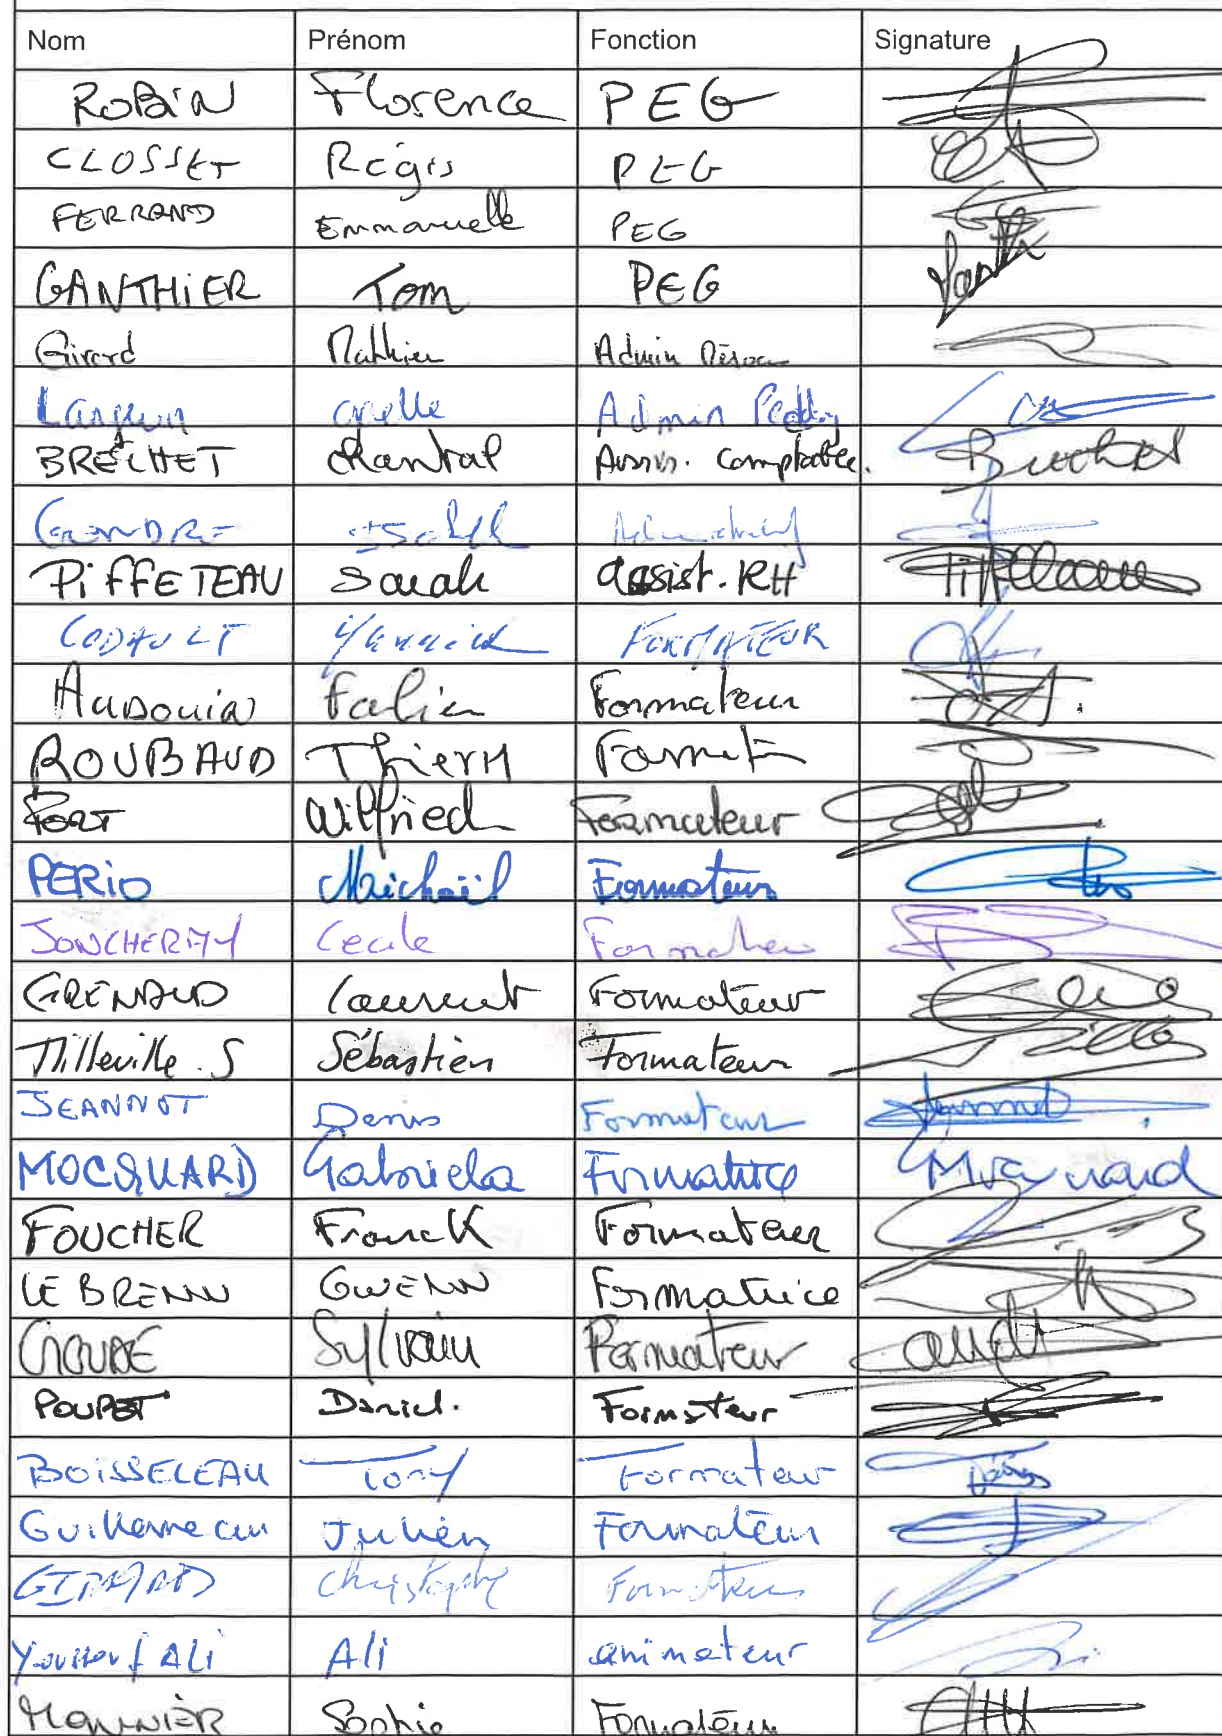 Nom Prénom Fonction Signature
ROBIN Florence PEG
CLOSSET Régis PEG
FERRAND Emmanuelle PEG
GANTHIER Tom PEG
Girard Mathieu Admin
Admin
BRECHET Chantal Assis. Comptable. Brechet
PIFFETEAU Sarah assist. RH Piffeteau
Yannick FORMATEUR
AUDOUIN Fabien Formateur
ROUBAUD Thierry
FORT Wilfried Formateur
PERIO Michaël Formateur
JONCHERAY Cecile
GRENAUD Laurent Formateur
Milleville . S Sébastien Formateur
JEANNOT Denis Formateur
MOCQUARD Gabriela Formatrice
FOUCHER Franck Formateur
LE BRENN GWENN Formatrice
Sylvain Formateur
POUPET Daniel. Formateur
BOISSELEAU Tony Formateur
Guillemeau Julien Formateur
Christophe
Youssouf ALi Ali animateur
MONNIER Sophie